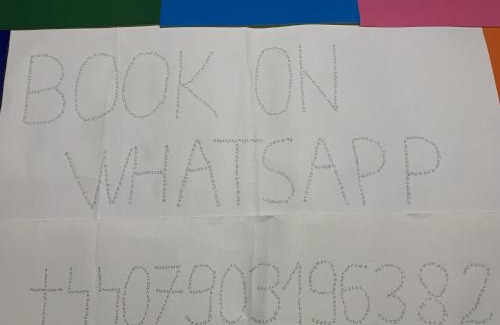 BOOK ON
WHATSAPP
+4407903196382